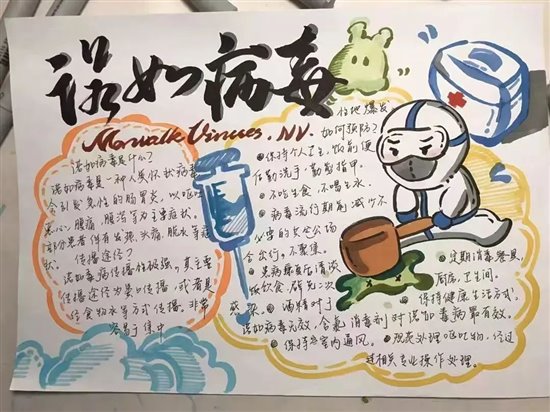 诺如病毒
Norwalk Viruses, NV.
诺如病毒是什么?
诺如病毒是一种人类杯状病毒
会引起急性的肠胃炎,以呕吐
恶心,腹痛,腹泻等为主要症状,
部分患者伴有发热,头痛,脱水等症
状。 传播途径?
诺如毒病传播性极强。其主要
传播途径为粪口传播,或者是
经食物水等方式传播,非常
容易于集中
任地爆发。
如何预防?
保持个人卫生,饭前便
后勤洗手,勤剪指甲。
不吃生食,不喝生水。
病毒流行期间减少不
必要的去公公场
合出行,不聚集。
患病康复后清淡
饮食,避免二次
感染。
酒精对于
诺如病毒无效,含氯消毒剂对诺如毒病最有效。
保持室内通风。
定期消毒餐具,
厨房,卫生间。
保持健康生活方式,
规范处理呕吐物,经过
过相关专业操作处理。